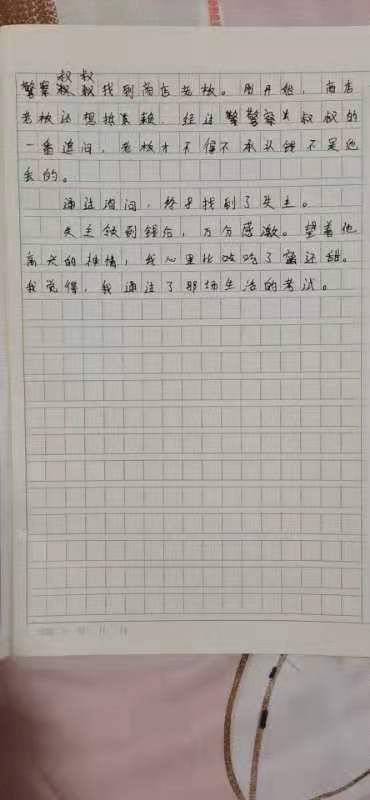 叔叔
警察叔叔找到商店老板。刚开始，商店
老板还想抵赖，经过警察叔叔的
一番追问，老板才不得不承认钱不是他
丢的。
通过询问，终于找到了失主。
失主领到钱后，万分感激。望着他
高兴的神情，我心里比吃了蜜还甜。
我觉得，我通过了那场生活的考试。